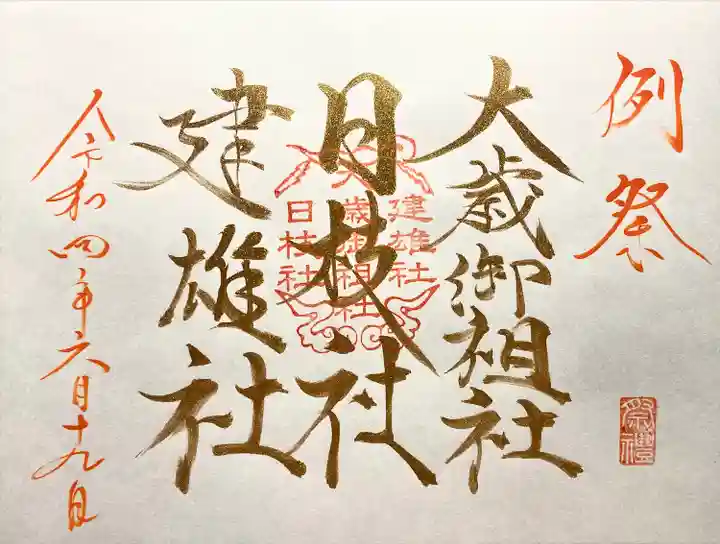 例祭
大歳御祖社
日枝社
建雄社
建雄社
大歳御祖社
日枝社
令和四年六月十九日
祭禮